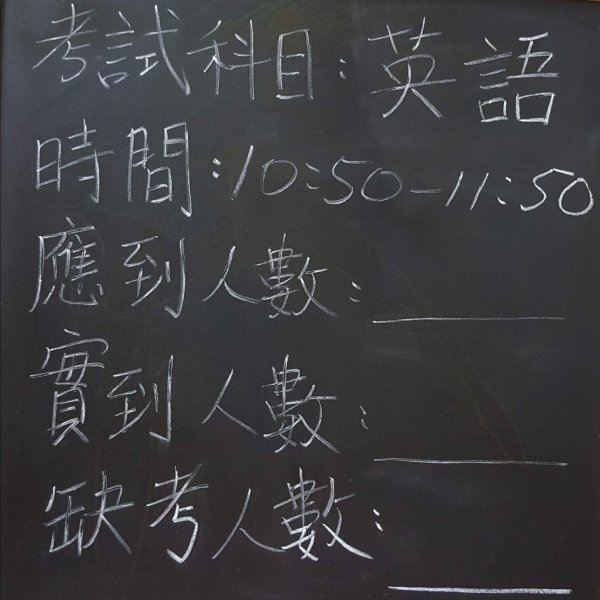 考試科目:英語
時間:10:50-11:50
應到人數:
實到人數:
缺考人數: